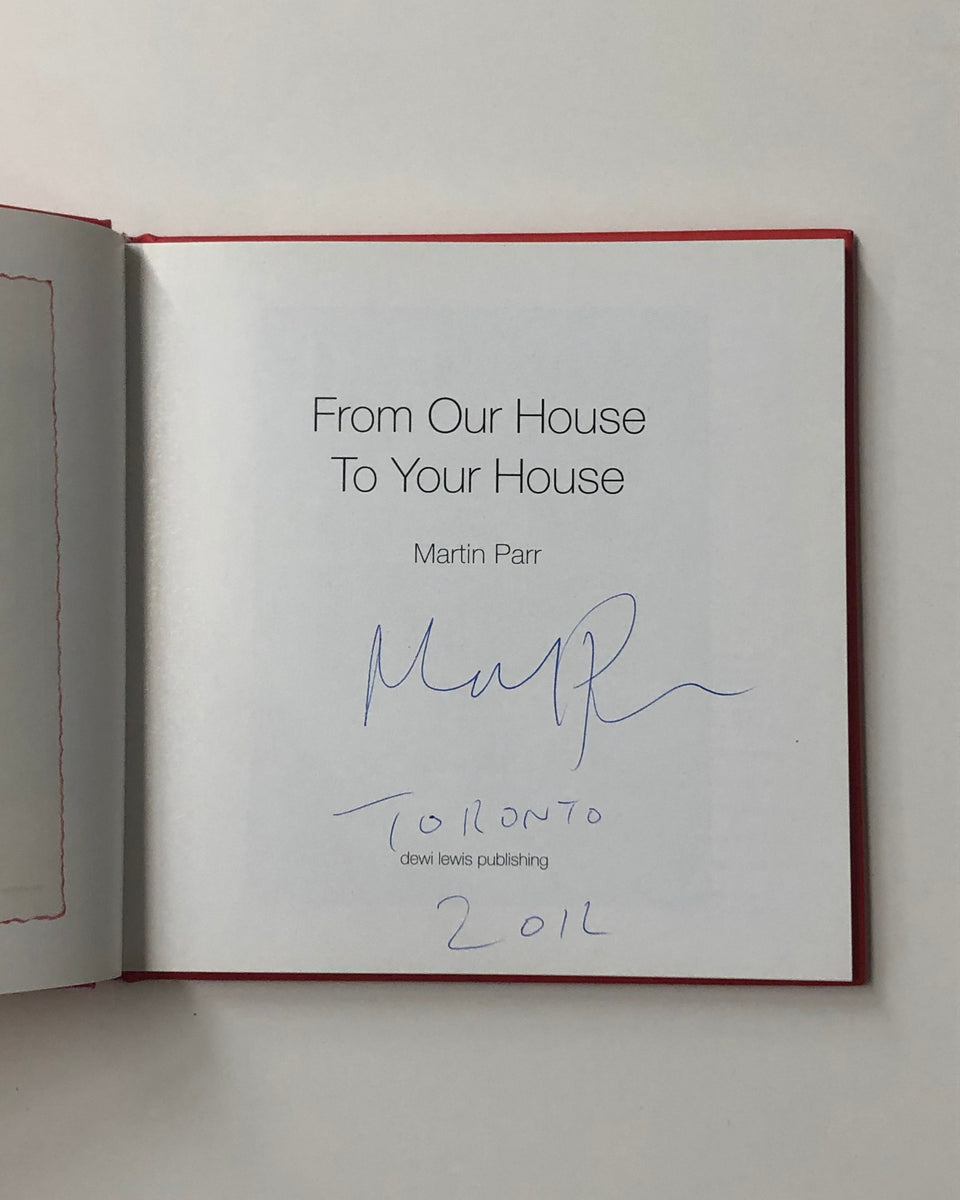 From Our House
To Your House
Martin Parr
TORONTO
dewi lewis publishing
2012